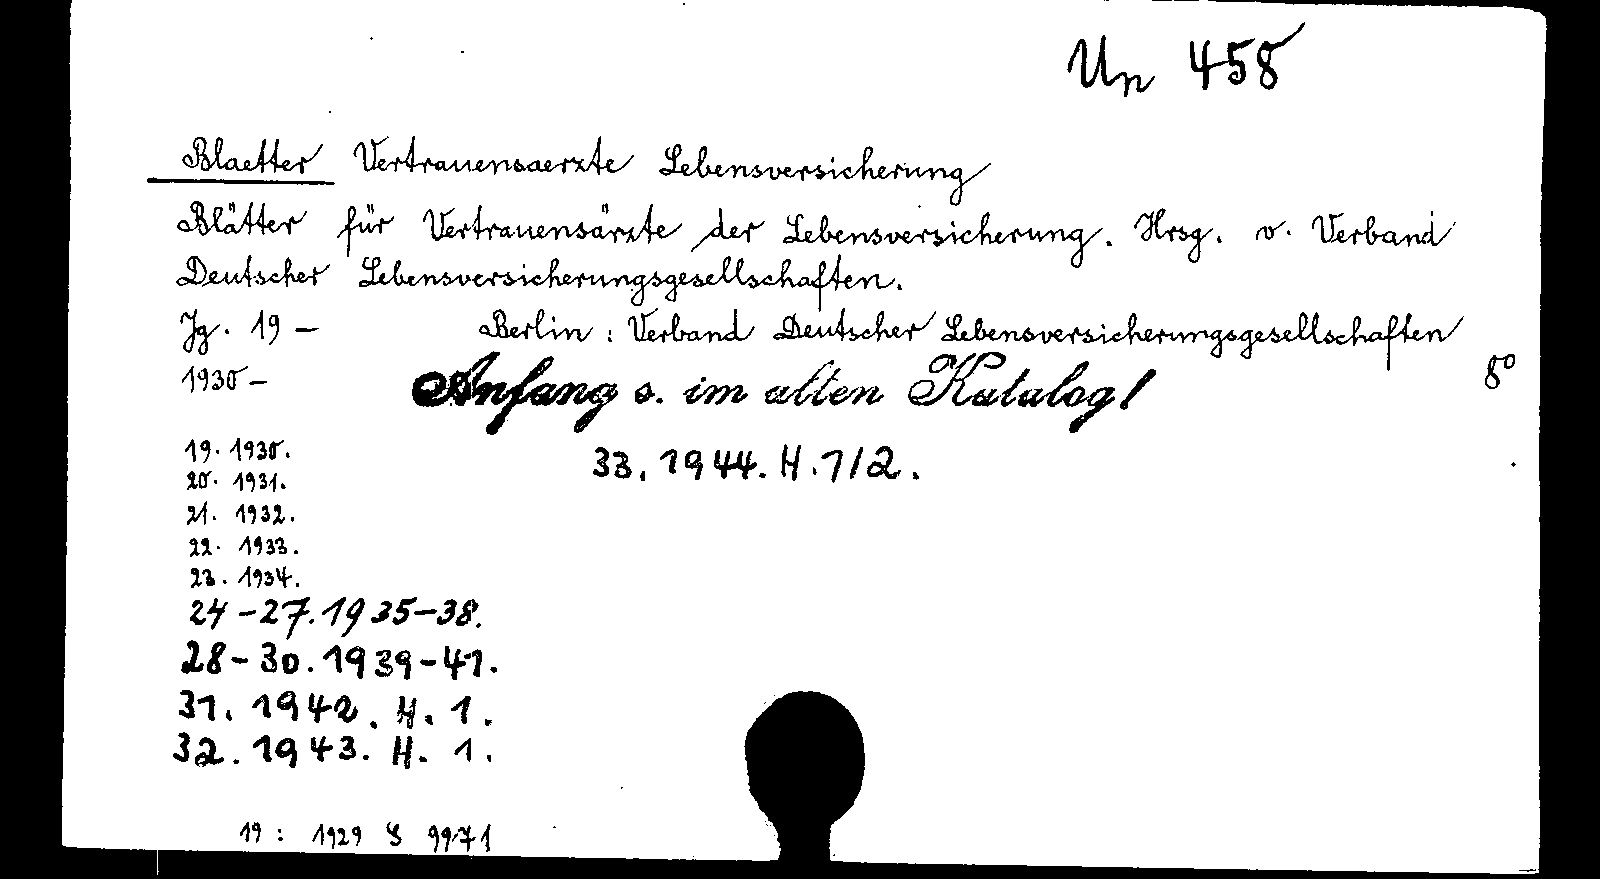 Un 458
Blaetter Vertrauensaerzte Lebensversicherung
Blätter für Vertrauensärzte der Lebensversicherung. Hrsg. v. Verband
Deutscher Lebensversicherungsgesellschaften.
Jg. 19 – Berlin : Verband Deutscher Lebensversicherungsgesellschaften
1930 – 8°
Anfang s. im alten Katalog!
19. 1930.
20. 1931.
21. 1932.
22. 1933.
23. 1934.
24–27. 1935–38.
28–30. 1939–41.
31. 1942. H. 1.
32. 1943. H. 1.
33. 1944. H. 1/2.
19 : 1929 S 9971